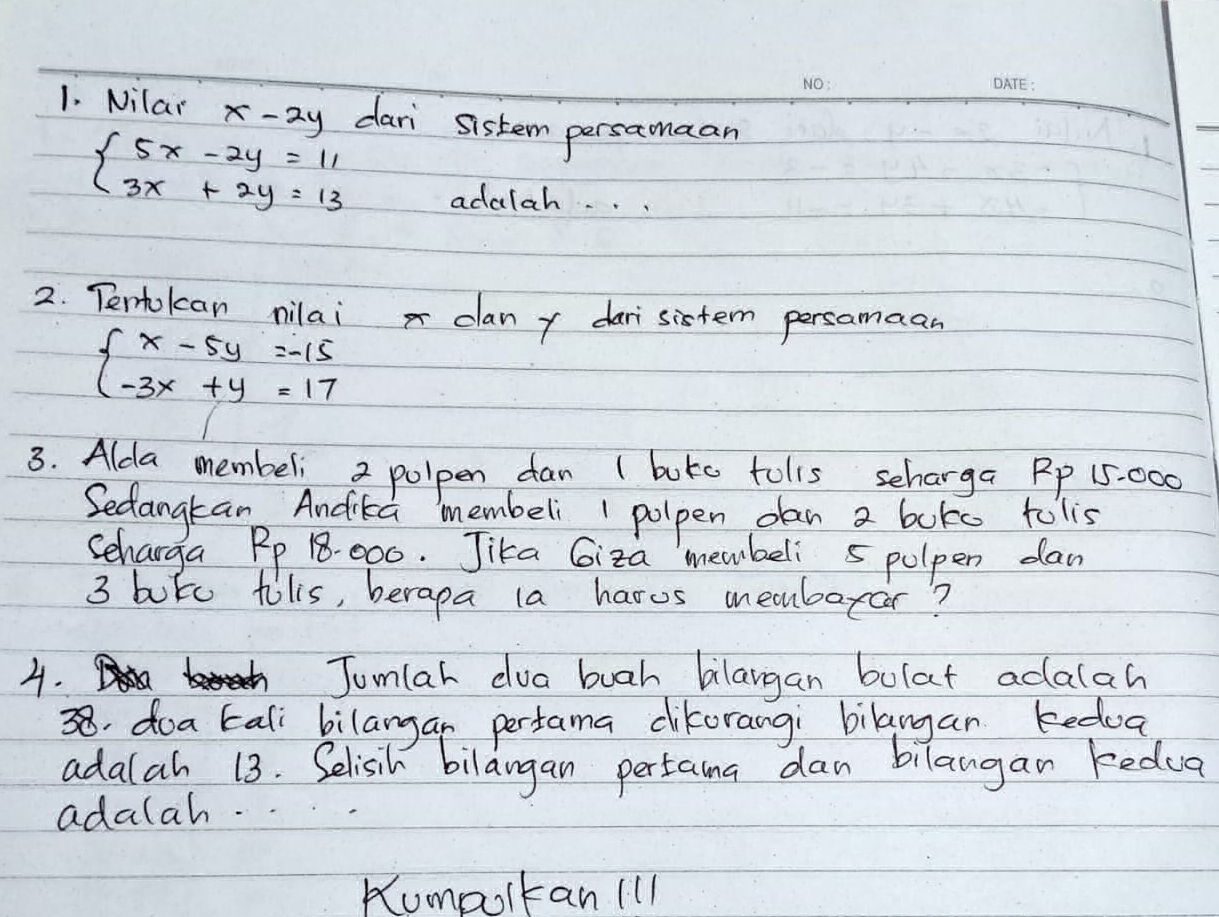 NO: DATE:
1. Nilai x - 2y dari sistem persamaan
5x - 2y = 11
3x + 2y = 13 adalah . . .
2. Tentukan nilai x dan y dari sistem persamaan
x - 5y = -15
-3x + y = 17
3. Alda membeli 2 pulpen dan 1 buku tulis seharga Rp 15.000
Sedangkan Andika membeli 1 pulpen dan 2 buku tulis
seharga Rp 18.000. Jika Giza membeli 5 pulpen dan
3 buku tulis, berapa ia harus membayar?
4. Jumlah dua buah bilangan bulat adalah
38. dua kali bilangan pertama dikurangi bilangan kedua
adalah 13. Selisih bilangan pertama dan bilangan kedua
adalah . . . .
Kumpulkan !!!